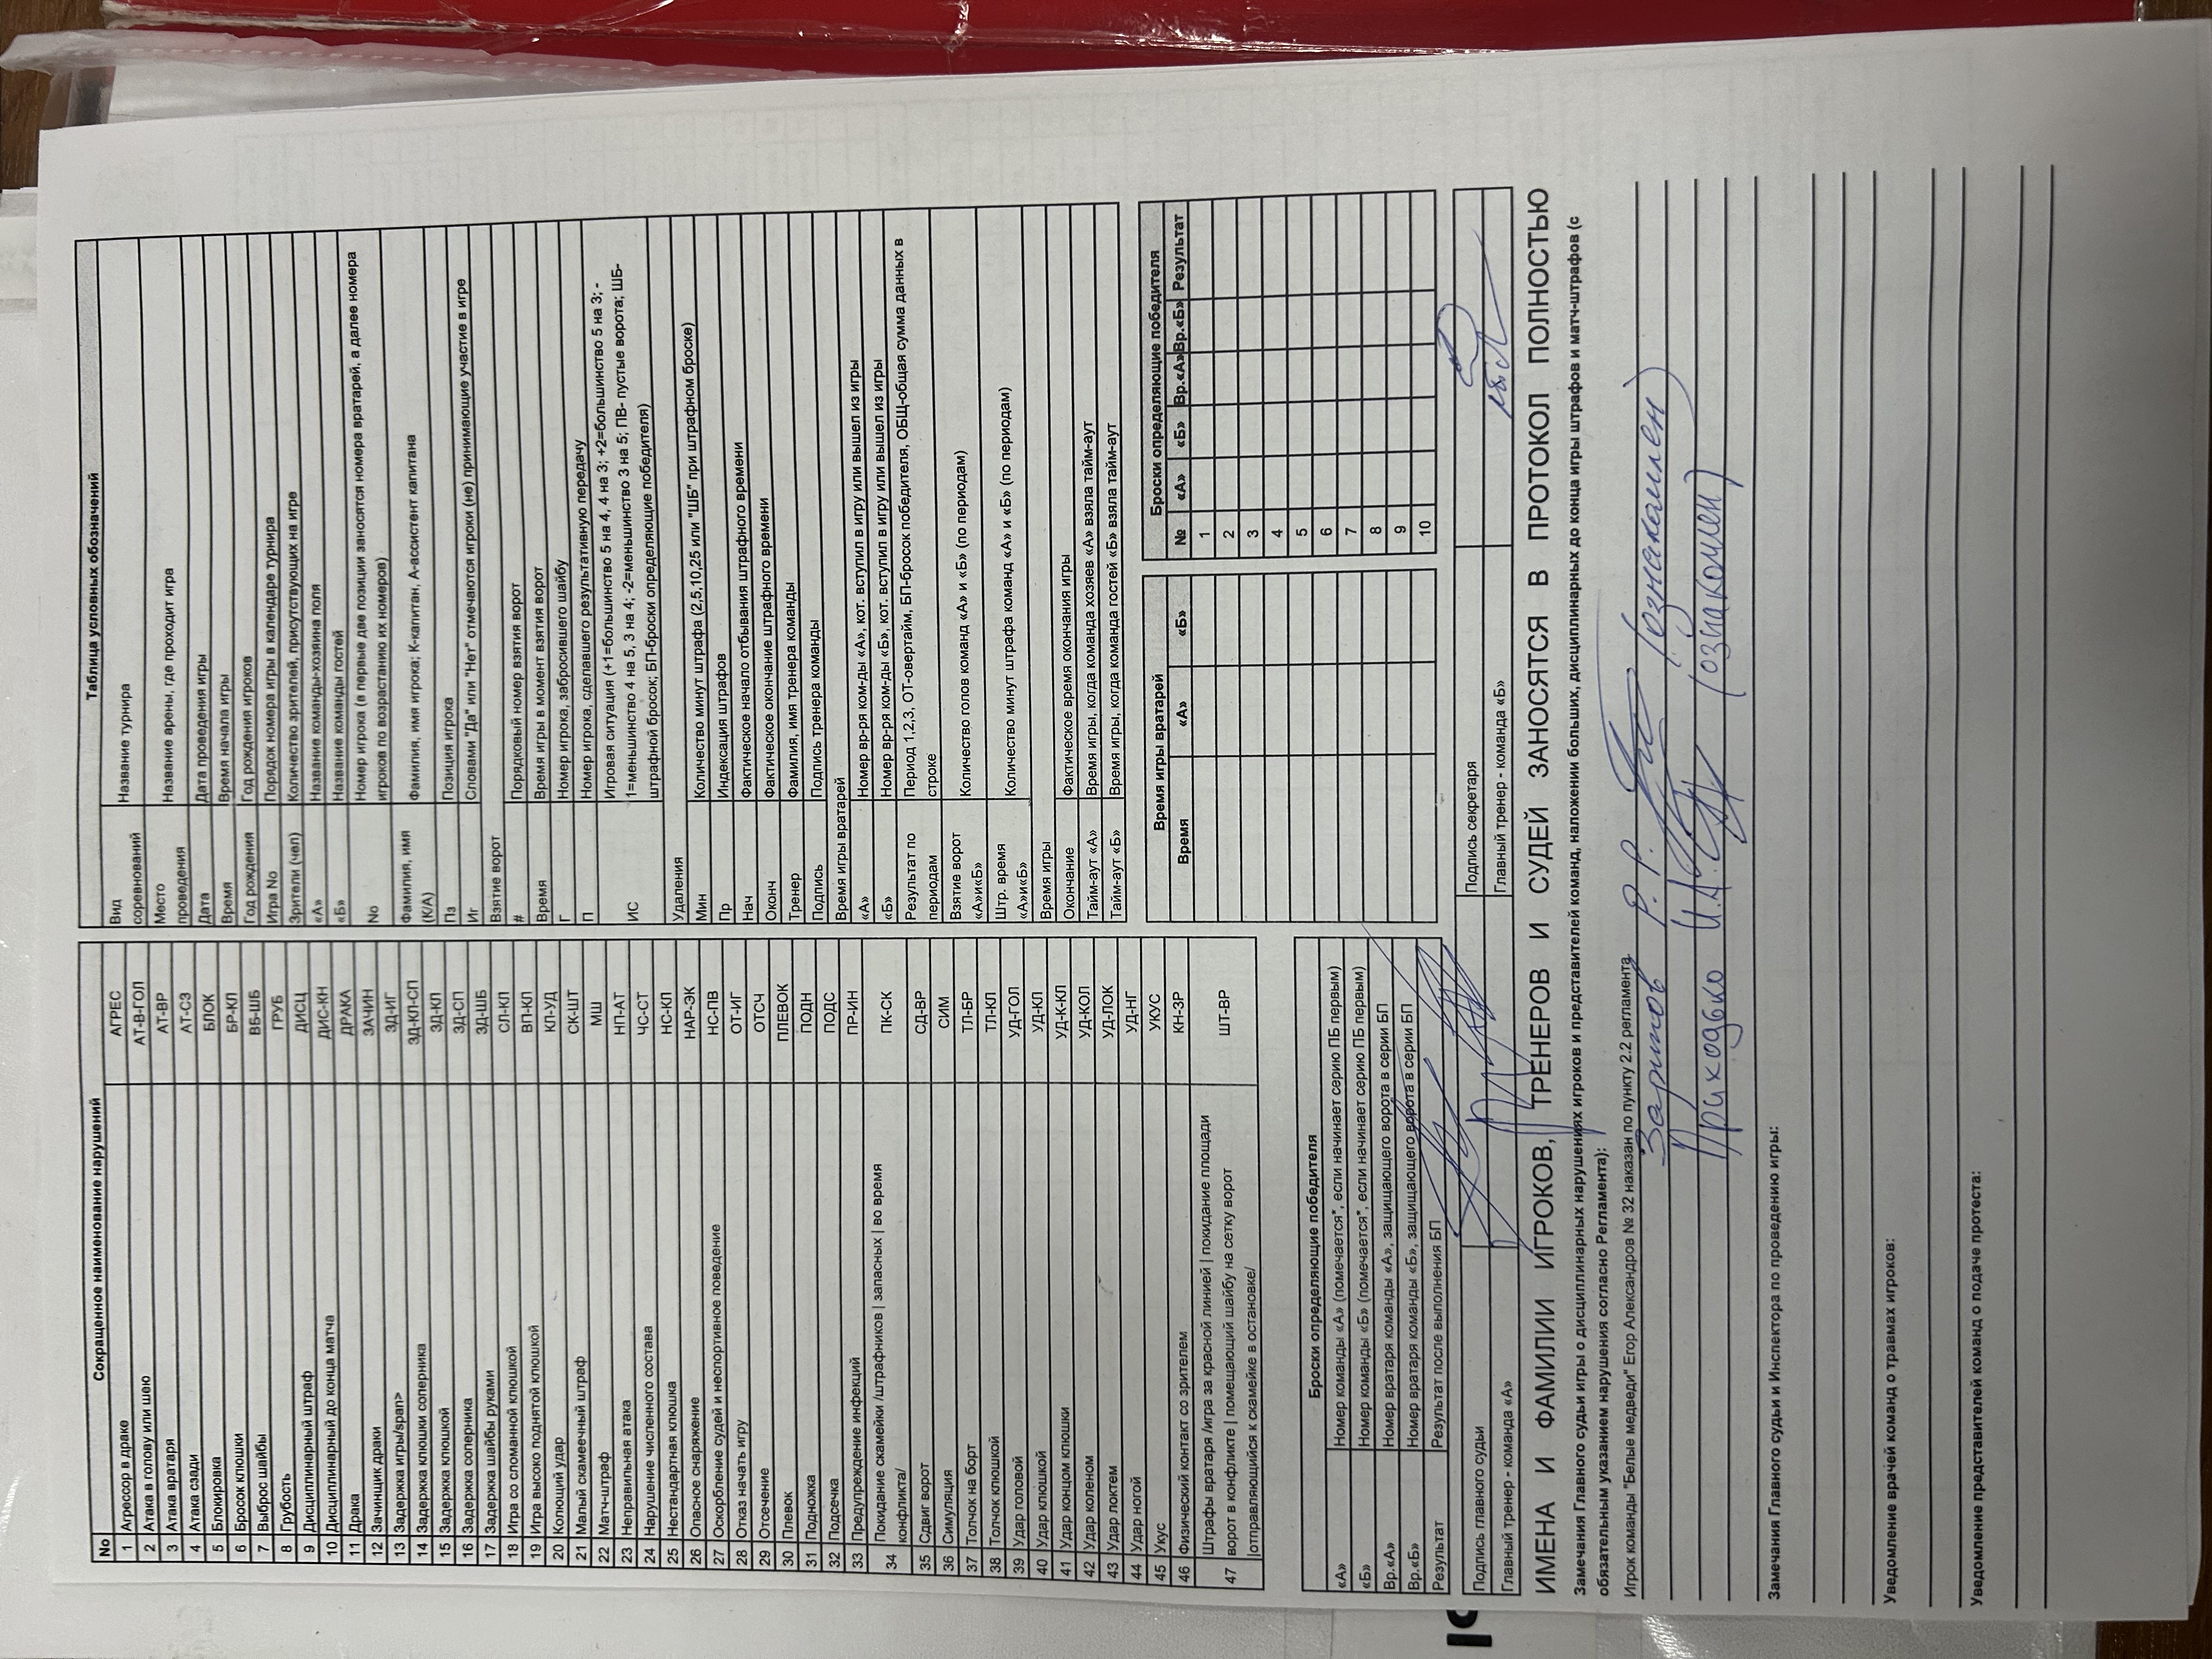 Сокращенное наименование нарушений
No
1 Агрессор в драке АГРЕС
2 Атака в голову или шею АТ-В-ГОЛ
3 Атака вратаря АТ-ВР
4 Атака сзади АТ-СЗ
5 Блокировка БЛОК
6 Бросок клюшки БР-КЛ
7 Выброс шайбы ВБ-ШБ
8 Грубость ГРУБ
9 Дисциплинарный штраф ДИСЦ
10 Дисциплинарный до конца матча ДИС-КН
11 Драка ДРАКА
12 Зачинщик драки ЗАЧИН
13 Задержка игры/span> ЗД-ИГ
14 Задержка клюшки соперника ЗД-КЛ-СП
15 Задержка клюшкой ЗД-КЛ
16 Задержка соперника ЗД-СП
17 Задержка шайбы руками ЗД-ШБ
18 Игра со сломанной клюшкой СЛ-КЛ
19 Игра высоко поднятой клюшкой ВП-КЛ
20 Колющий удар КЛ-УД
21 Малый скамеечный штраф СК-ШТ
22 Матч-штраф МШ
23 Неправильная атака НП-АТ
24 Нарушение численного состава ЧС-СТ
25 Нестандартная клюшка НС-КЛ
26 Опасное снаряжение НАР-ЭК
27 Оскорбление судей и неспортивное поведение НС-ПВ
28 Отказ начать игру ОТ-ИГ
29 Отсечение ОТСЧ
30 Плевок ПЛЕВОК
31 Подножка ПОДН
32 Подсечка ПОДС
33 Предупреждение инфекций ПР-ИН
34 Покидание скамейки /штрафников | запасных | во время
конфликта/ ПК-СК
35 Сдвиг ворот СД-ВР
36 Симуляция СИМ
37 Толчок на борт ТЛ-БР
38 Толчок клюшкой ТЛ-КЛ
39 Удар головой УД-ГОЛ
40 Удар клюшкой УД-КЛ
41 Удар концом клюшки УД-К-КЛ
42 Удар коленом УД-КОЛ
43 Удар локтем УД-ЛОК
44 Удар ногой УД-НГ
45 Укус УКУС
46 Физический контакт со зрителем КН-ЗР
47 Штрафы вратаря /игра за красной линией | покидание площади
ворот в конфликте | помещающий шайбу на сетку ворот
|отправляющийся к скамейке в остановке/ ШТ-ВР
Таблица условных обозначений
Вид соревнований Название турнира
Место проведения Название арены, где проходит игра
Дата Дата проведения игры
Время Время начала игры
Год рождения Год рождения игроков
Игра No Порядок номера игры в календаре турнира
Зрители (чел) Количество зрителей, присутствующих на игре
«А» Название команды-хозяина поля
«Б» Название команды гостей
No Номер игрока (в первые две позиции заносятся номера вратарей, а далее номера
игроков по возрастанию их номеров)
Фамилия, имя (К/А) Фамилия, имя игрока; К-капитан, А-ассистент капитана
Пз Позиция игрока
Иг Словами "Да" или "Нет" отмечаются игроки (не) принимающие участие в игре
Взятие ворот
# Порядковый номер взятия ворот
Время Время игры в момент взятия ворот
Г Номер игрока, забросившего шайбу
П Номер игрока, сделавшего результативную передачу
ИС Игровая ситуация (+1=большинство 5 на 4, 4 на 3; +2=большинство 5 на 3; -
1=меньшинство 4 на 5, 3 на 4; -2=меньшинство 3 на 5; ПВ- пустые ворота; ШБ-
штрафной бросок; БП-броски определяющие победителя)
Удаления
Мин Количество минут штрафа (2,5,10,25 или "ШБ" при штрафном броске)
Пр Индексация штрафов
Нач Фактическое начало отбывания штрафного времени
Оконч Фактическое окончание штрафного времени
Тренер Фамилия, имя тренера команды
Подпись Подпись тренера команды
Время игры вратарей
«А» Номер вр-ря ком-ды «А», кот. вступил в игру или вышел из игры
«Б» Номер вр-ря ком-ды «Б», кот. вступил в игру или вышел из игры
Результат по периодам Период 1,2,3, ОТ-овертайм, БП-бросок победителя, ОБЩ-общая сумма данных в
строке
Взятие ворот «А»и«Б» Количество голов команд «А» и «Б» (по периодам)
Штр. время «А»и«Б» Количество минут штрафа команд «А» и «Б» (по периодам)
Время игры
Окончание Фактическое время окончания игры
Тайм-аут «А» Время игры, когда команда хозяев «А» взяла тайм-аут
Тайм-аут «Б» Время игры, когда команда гостей «Б» взяла тайм-аут
Броски определяющие победителя
«А» Номер команды «А» (помечается*, если начинает серию ПБ первым)
«Б» Номер команды «Б» (помечается*, если начинает серию ПБ первым)
Вр.«А» Номер вратаря команды «А», защищающего ворота в серии БП
Вр.«Б» Номер вратаря команды «Б», защищающего ворота в серии БП
Результат Результат после выполнения БП
Время игры вратарей
Время «А» «Б»
Броски определяющие победителя
№ «А» «Б» Вр.«А» Вр.«Б» Результат
1
2
3
4
5
6
7
8
9
10
Подпись главного судьи Подпись секретаря
Главный тренер - команда «А» Главный тренер - команда «Б»
ИМЕНА И ФАМИЛИИ ИГРОКОВ, ТРЕНЕРОВ И СУДЕЙ ЗАНОСЯТСЯ В ПРОТОКОЛ ПОЛНОСТЬЮ
Замечания Главного судьи игры о дисциплинарных нарушениях игроков и представителей команд, наложении больших, дисциплинарных до конца игры штрафов и матч-штрафов (с
обязательным указанием нарушения согласно Регламента):
Игрок команды "Белые медведи" Егор Александров № 32 наказан по пункту 2.2 регламента.
Зарипов Р. Р. (ознакомлен)
Приходько И.А. (ознакомлен)
Замечания Главного судьи и Инспектора по проведению игры:
Уведомление врачей команд о травмах игроков:
Уведомление представителей команд о подаче протеста: